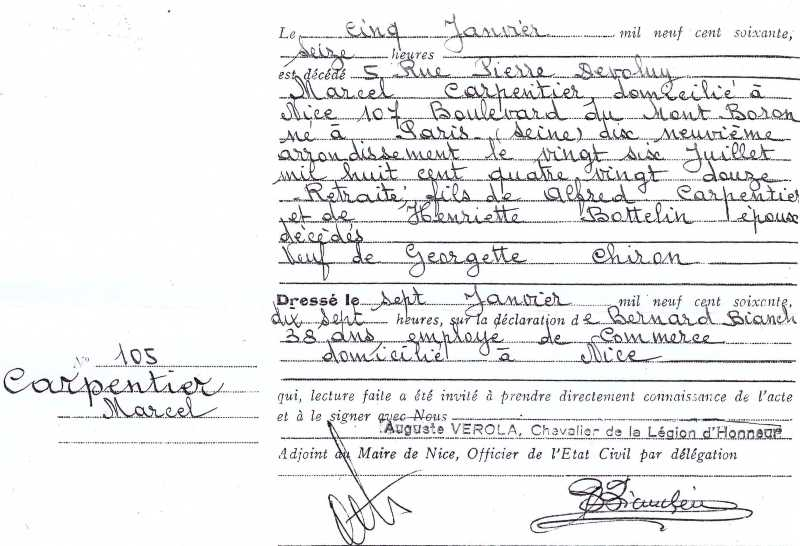 Le cinq Janvier mil neuf cent soixante,
seize heures
est décédé 5 Rue Pierre Devoluy
Marcel Carpentier, domicilié à
Nice 107 Boulevard du Mont Boron
né à Paris (Seine) dix neuvième
arrondissement le vingt six Juillet
mil huit cent quatre vingt douze
Retraité, fils de Alfred Carpentier
et de Henriette Bottelin époux
décédés
Veuf de Georgette Chiron
Dressé le sept Janvier mil neuf cent soixante,
dix sept heures, sur la déclaration de Bernard Bianch
38 ans, employé de Commerce
domicilié à Nice
N° 105
Carpentier
Marcel
qui, lecture faite a été invité à prendre directement connaissance de l'acte
et à le signer avec Nous
Auguste VEROLA, Chevalier de la Légion d'Honneur
Adjoint au Maire de Nice, Officier de l'Etat Civil par délégation